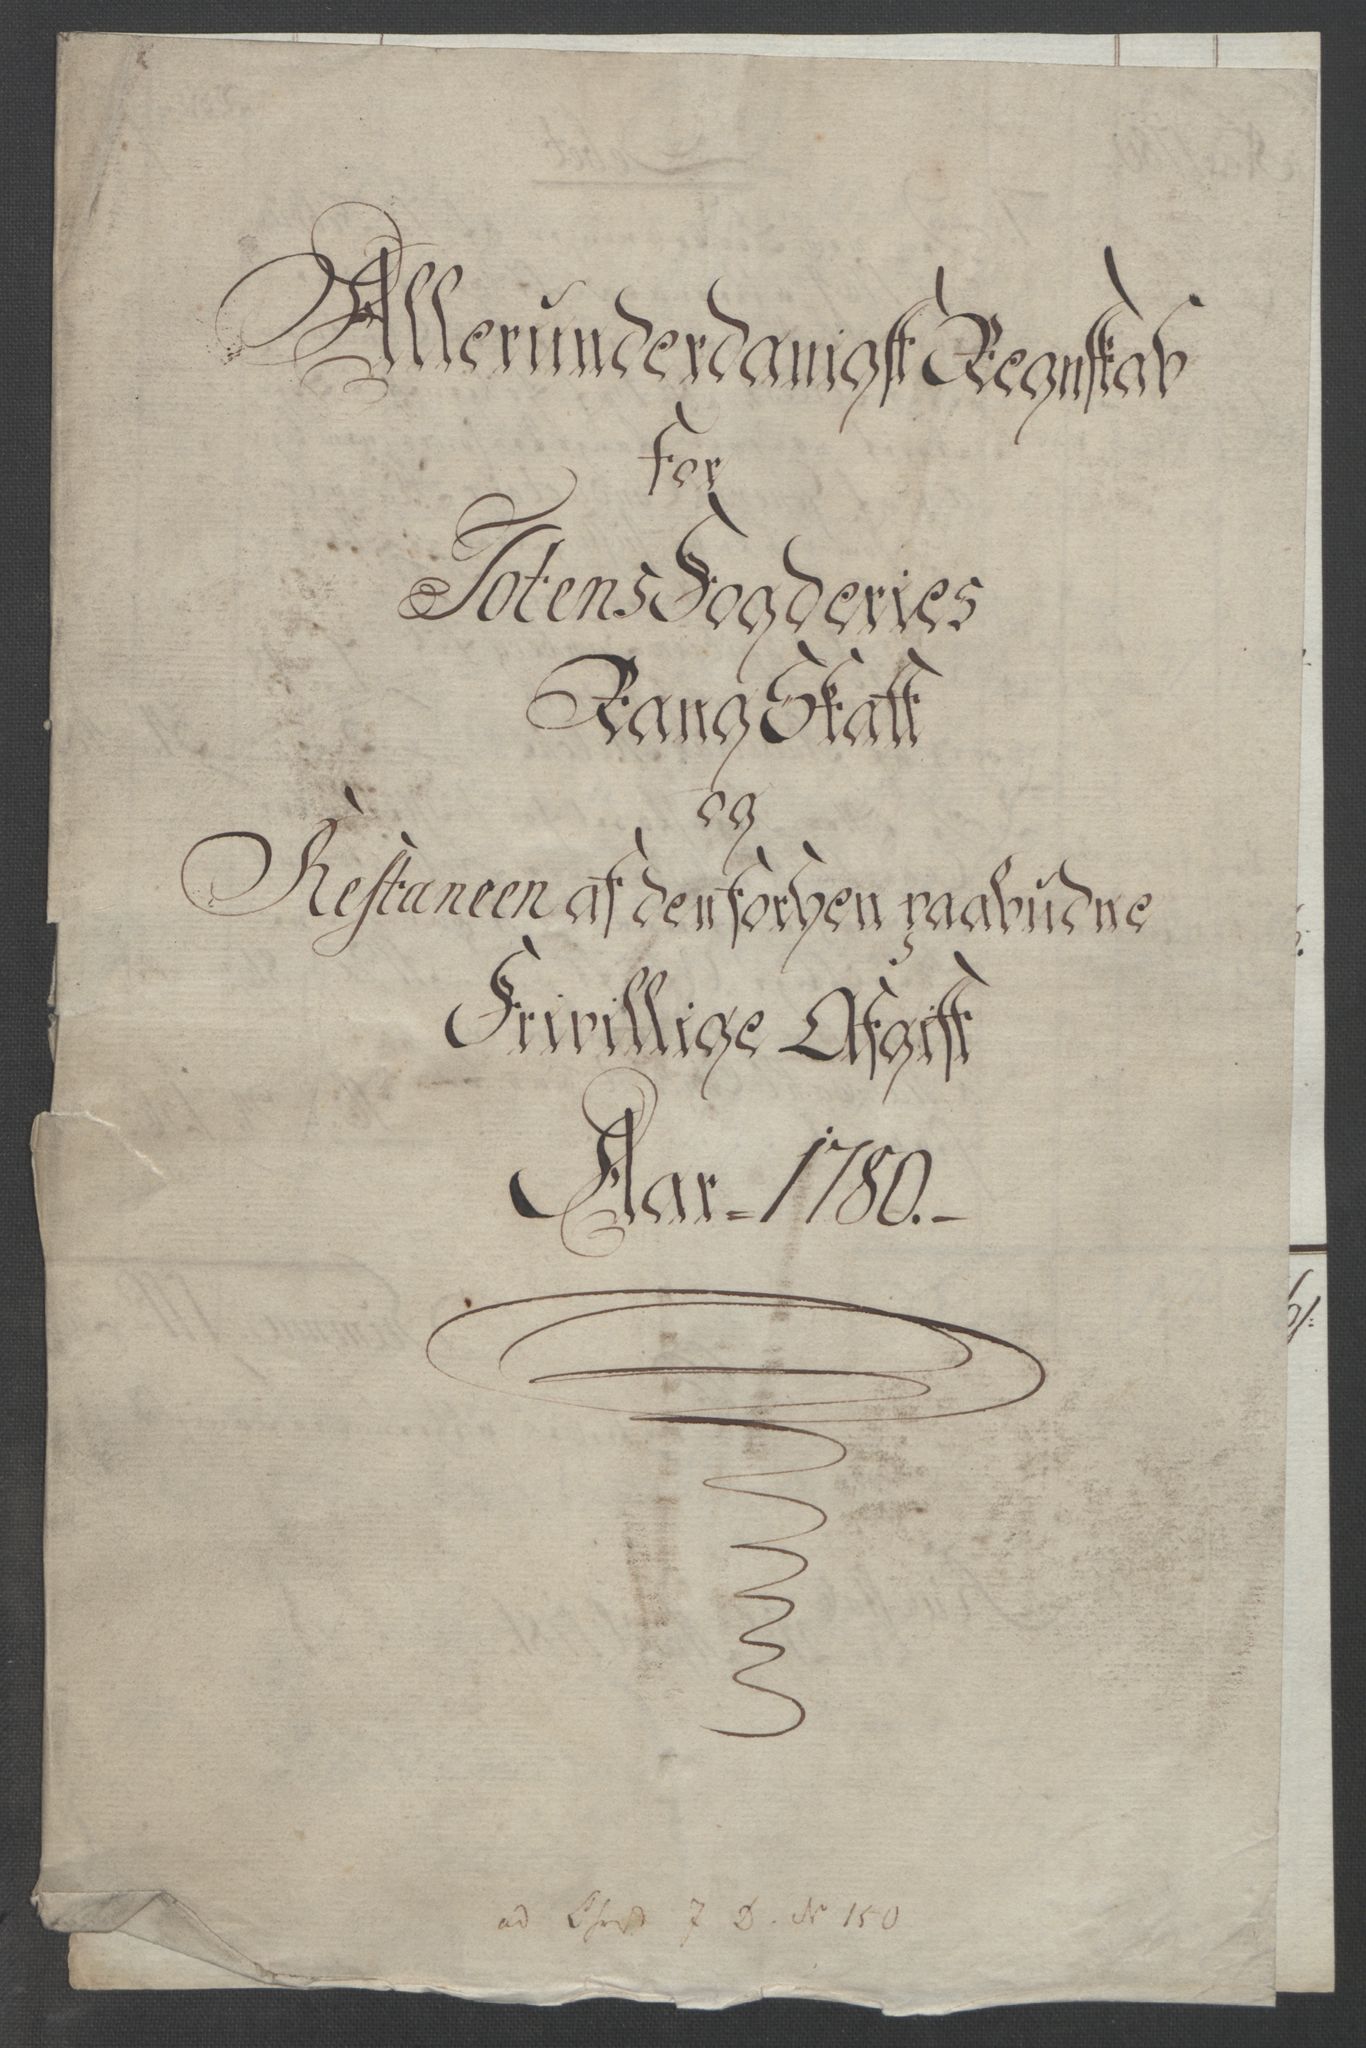 Allerunderdanigst Regnskab
for
Totens Fogderies
Rang Skatt
og
Restancen af den forhen paabudne
Frivillige Afgift
Aar = 1780. –
ad 7 D. No 150